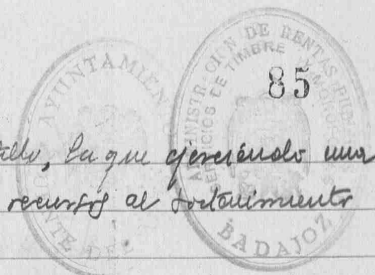 85
AYUNTAMIEN
NTE DE
ADMINISTRACION DE RENTAS
DE TIMBRE
BADAJOZ
la que ejerciendo una
recursos al sostenimiento